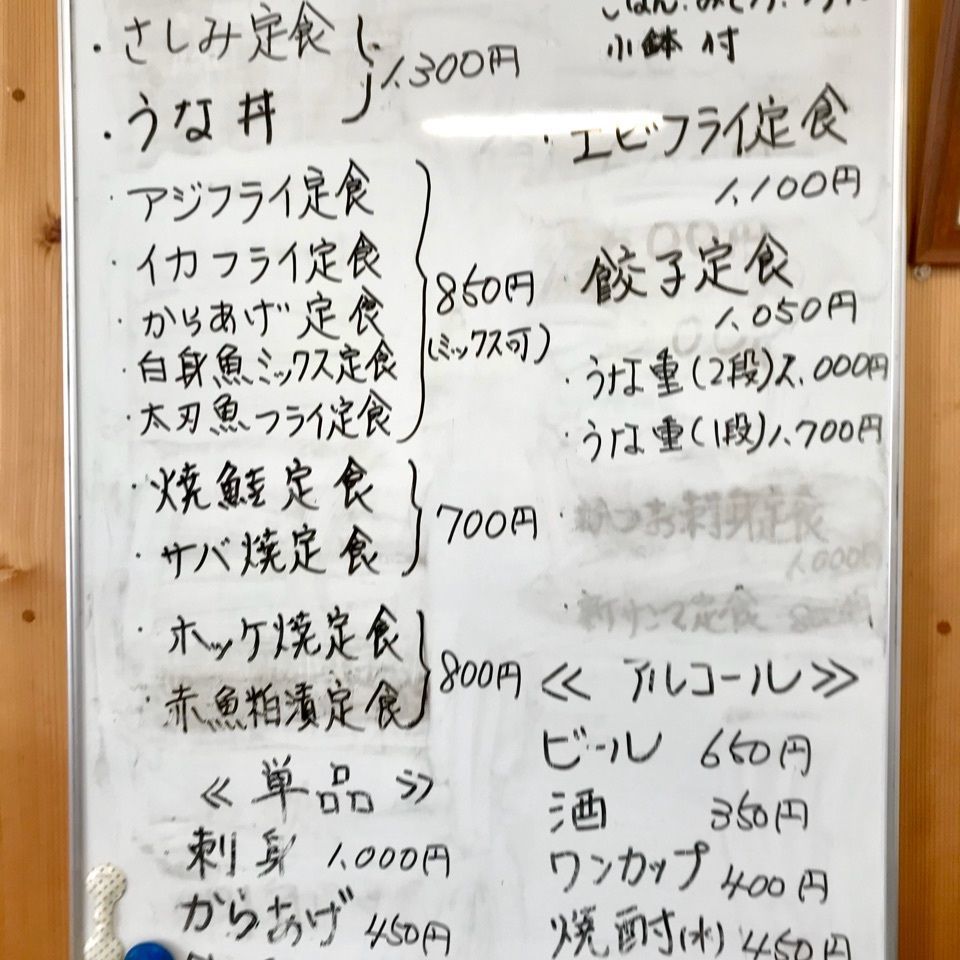 ・さしみ定食
・うな丼
1,300円
・アジフライ定食
・イカフライ定食
・からあげ定食
・白身魚ミックス定食
・太刃魚フライ定食
850円
(ミックス可)
・焼鮭定食
・サバ焼定食
700円
・ホッケ焼定食
・赤魚粕漬定食
800円
≪単品≫
刺身 1,000円
からあげ 450円
小鉢付
・エビフライ定食
1,100円
・餃子定食
1,050円
・うな重(2段)2,000円
・うな重(1段)1,700円
・かつお刺身定食
1,000円
・新サンマ定食
≪アルコール≫
ビール 650円
酒 350円
ワンカップ 400円
焼酎(水) 450円